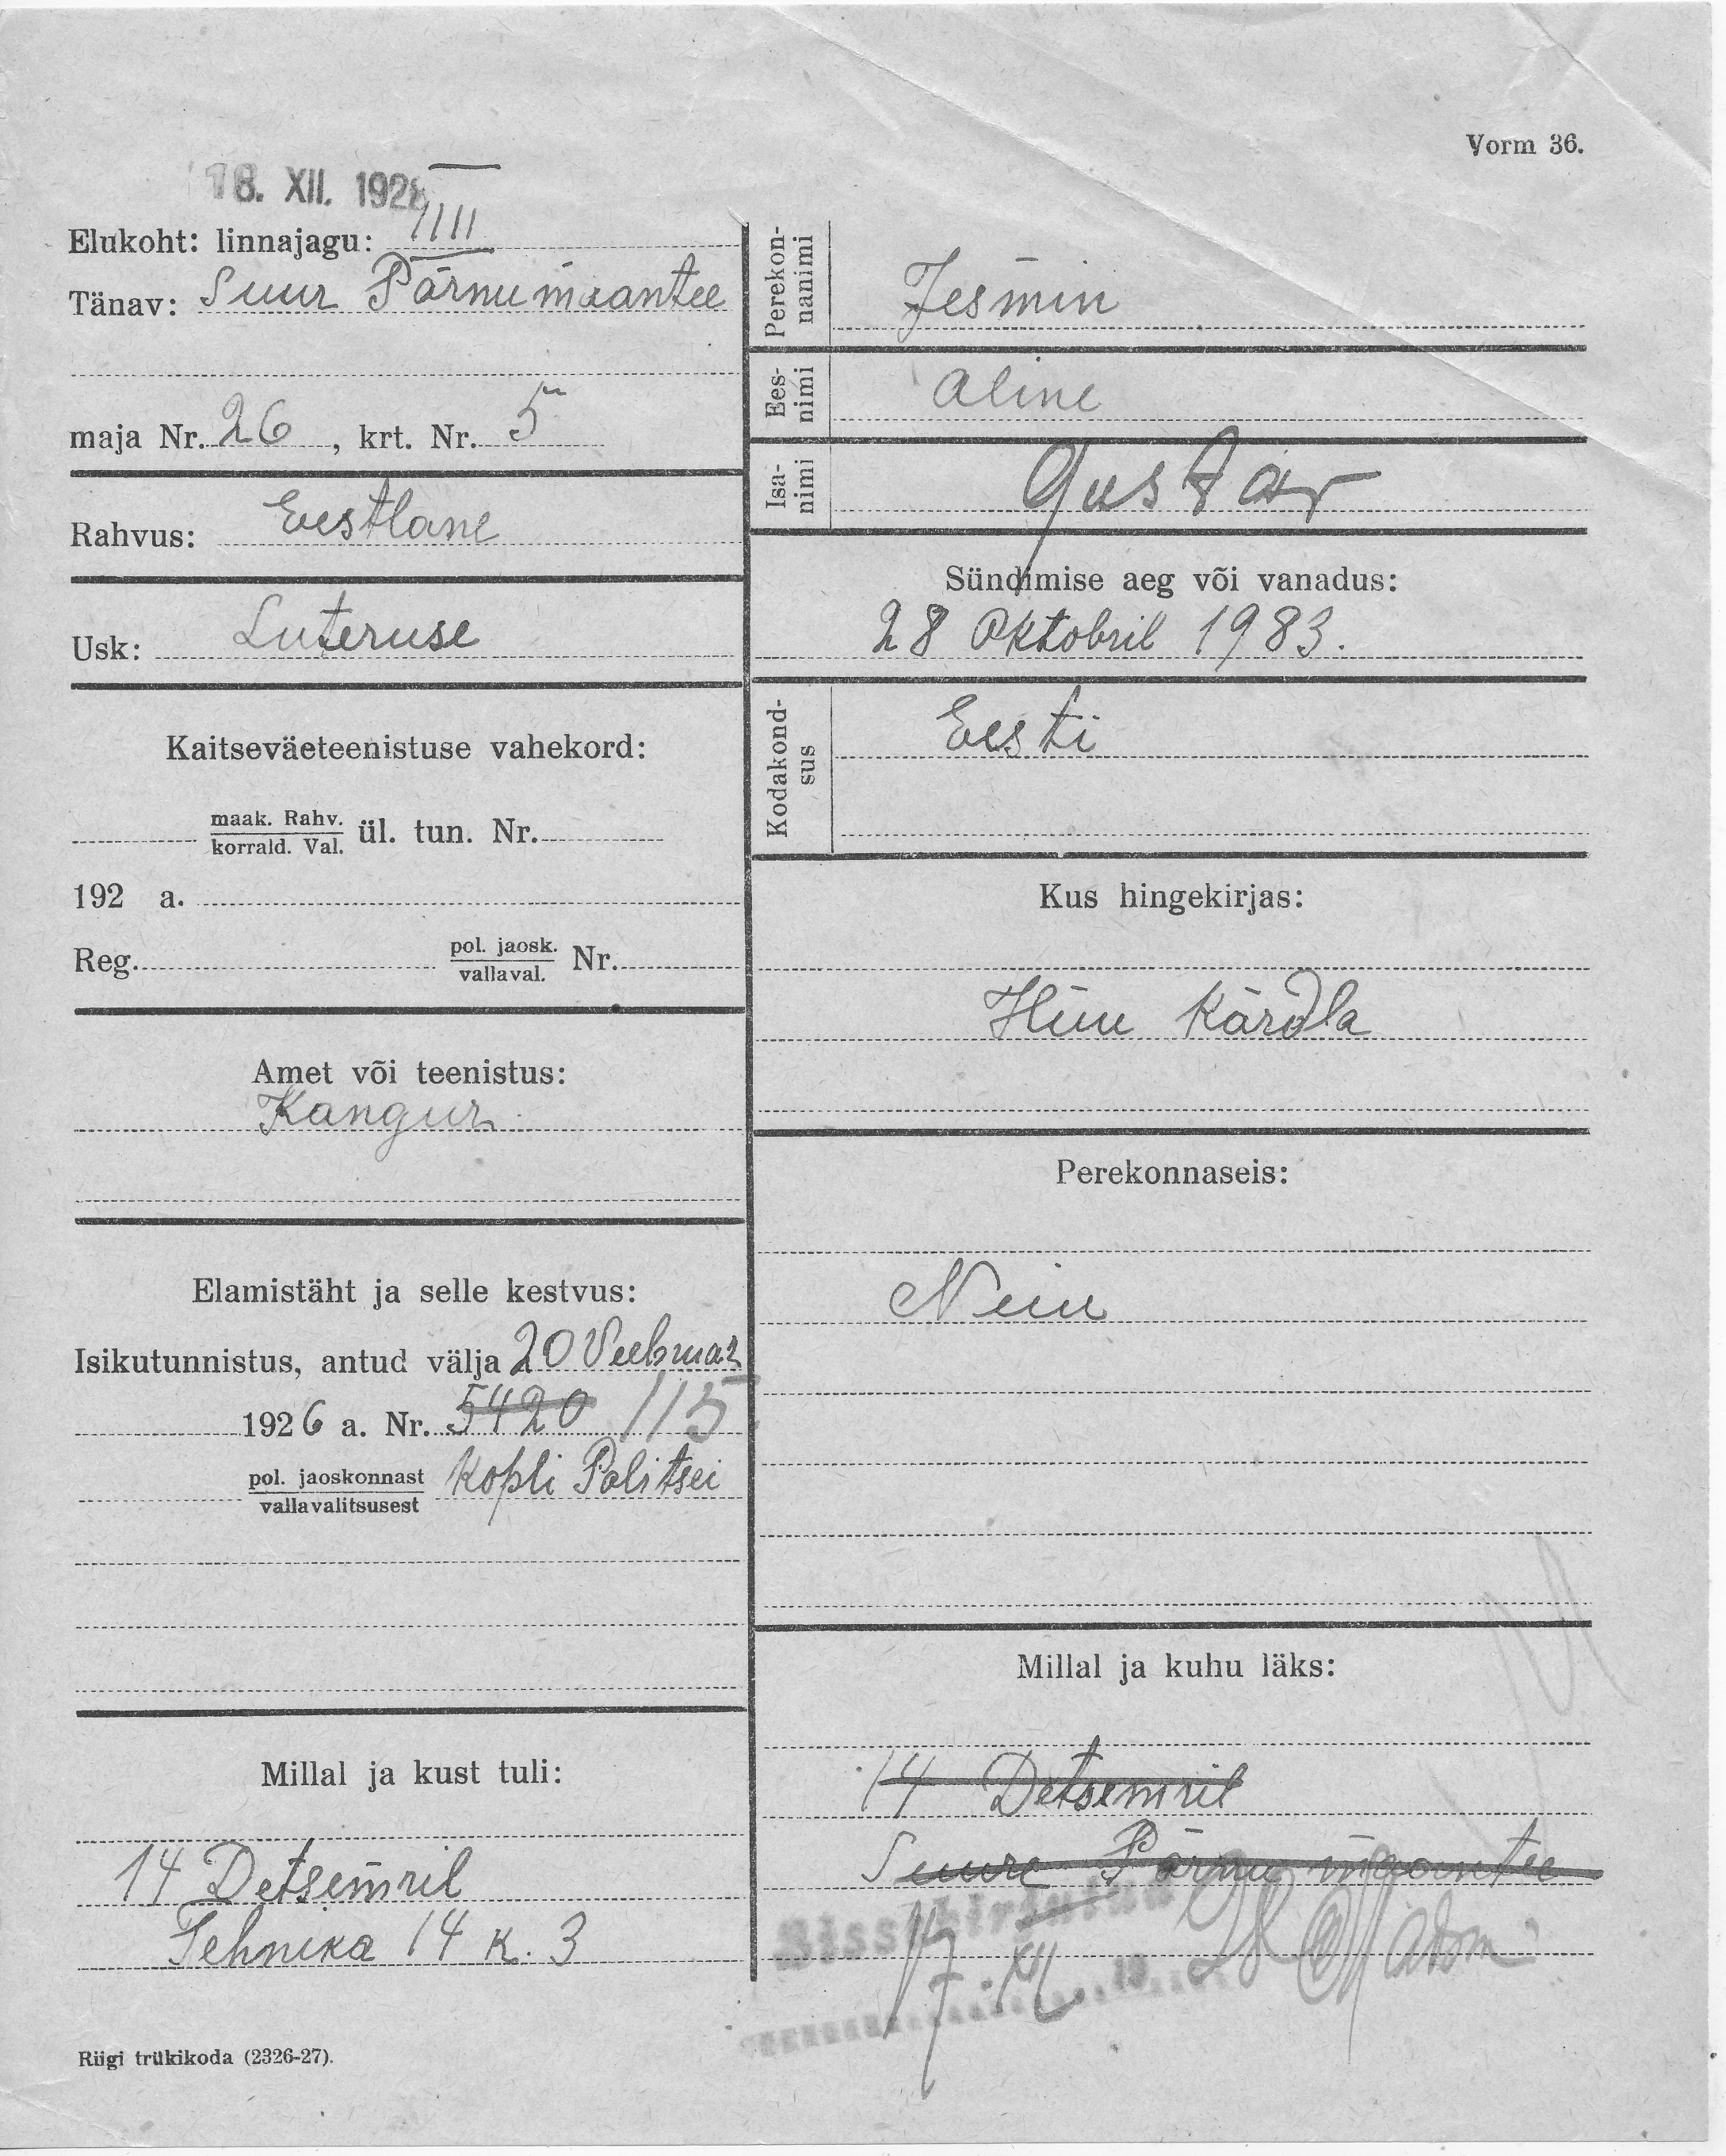 Vorm 36.
18. XII. 1928
Elukoht: linnajagu: IIII
Tänav: Suur Pärnu maantee
maja Nr. 26, krt. Nr. 5
Rahvus: Eestlane
Usk: Luteruse
Kaitseväeteenistuse vahekord:
maak. Rahv.
korrald. Val.
ül. tun. Nr.
192 a.
Reg. pol. jaosk. Nr.
vallaval.
Amet või teenistus:
Kangur
Elamistäht ja selle kestvus:
Isikutunnistus, antud välja 20 Veebruar
1926 a. Nr. 5420 115
pol. jaoskonnast Kopli Politsei
vallavalitsusest
Millal ja kust tuli:
14 Detsemril
Tehnika 14 k. 3
Riigi trükikoda (2326-27).
Perekon-
nanimi
Jesmin
Ees-
nimi
Aline
Isa-
nimi
Gustav
Sündimise aeg või vanadus:
28 Oktobril 1983.
Kodakond-
sus
Eesti
Kus hingekirjas:
Hiiu Kärdla
Perekonnaseis:
Neiu
Millal ja kuhu läks:
14 Detsemril
Suure Pärnu maantee
Sissekirjutud
17. XII 19